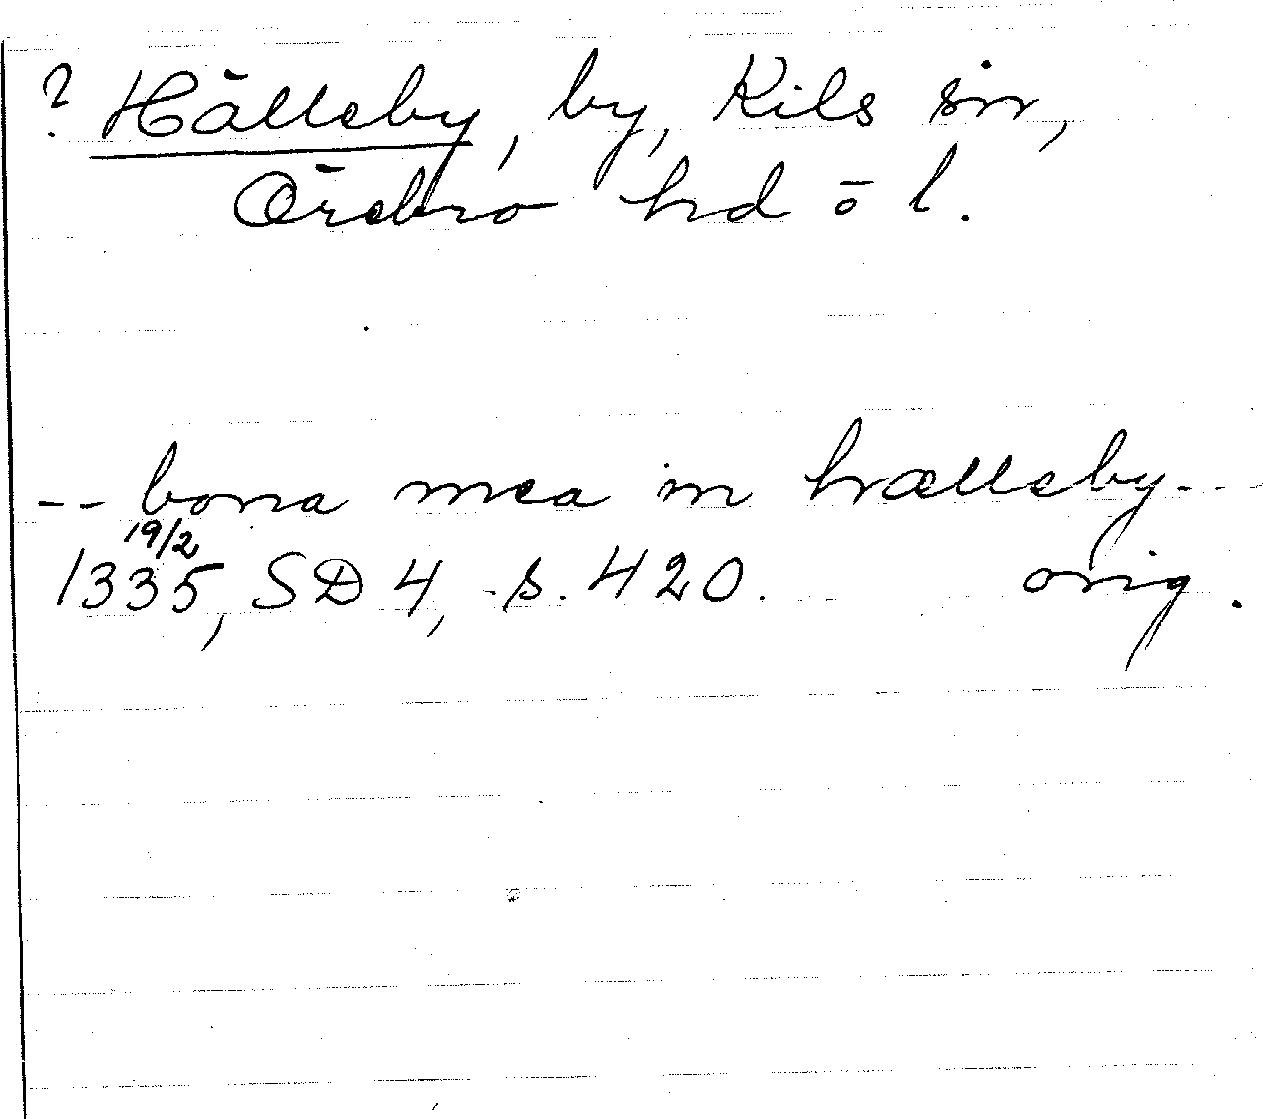 ? Hälleby, by, Kils sn,
Örebro hd o l.
-- bona mea in hælleby --
19/2
1335, SD 4, s. 420. orig.